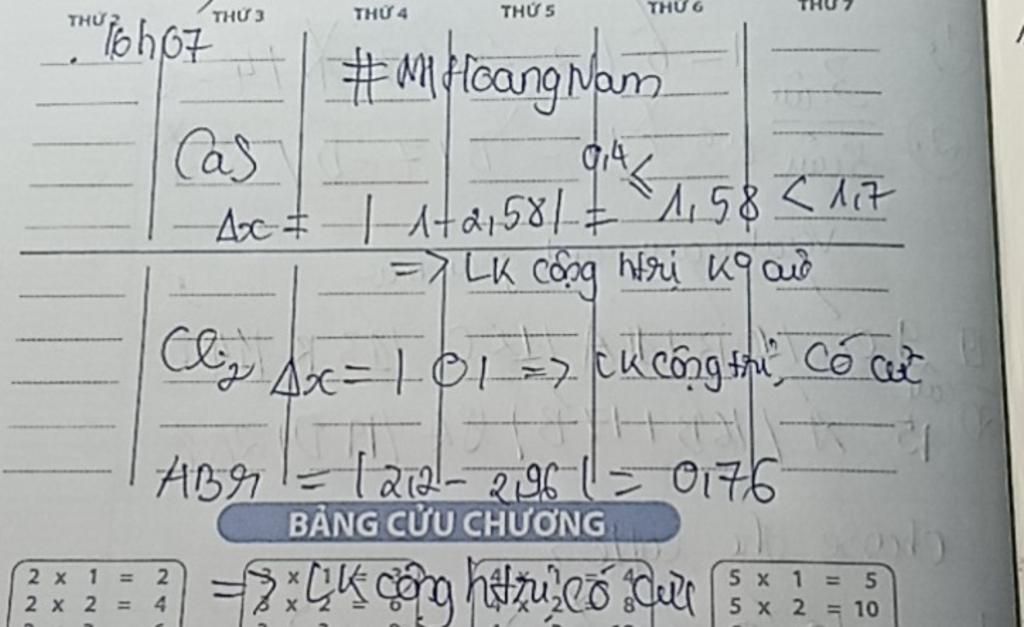 THỨ 2 THỨ 3 THỨ 4 THỨ 5 THỨ 6 THỨ 7
16h07
#MHoangNam
CaS
0,4 ≤
Δx = | 1-2,58| = 1,58 < 1,7
=> LK cộng htrị K9 cực
Cl2 Δx = | 0 | => LK cộng trị, có cực
HBr = |2,2 - 2,96 | = 0,76
BẢNG CỬU CHƯƠNG
=> LK cộng htrị có cực
2 x 1 = 2
2 x 2 = 4
5 x 1 = 5
5 x 2 = 10